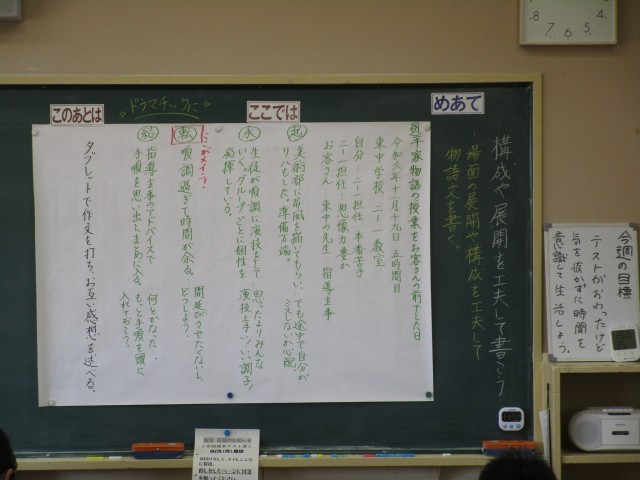 めあて
構成や展開を工夫して書こう
・場面の展開や構成を工夫して
物語文を書く。
ここでは
ドラマチックに
このあとは
平家物語の授業をお客さんの前でした日
令和六年十一月十九日 五時間目
東中学校 二ー一教室
自分…二ー一担任 本番苦手
二ー一担任…想像力豊か
お客さん…東中の先生 指導主事
起
美術部に屏風を描いてもらい、
リハもした。準備万端。
でも途中で自分が
ミスしないか心配
承
生徒が順調に演技をして
いく。グループごとに個性を
発揮している。
思ったよりみんな
演技上手!いい調子!
ここがメイン!
転
順調過ぎて時間が余る。
間延びさせたくないし
どうしよう
結
指導主事のアドバイスで
手順を思い出しまとめに入る。
何とかなった…
もっと手順を頭に
入れておこう。
タブレットで作文を打ち、お互い感想を述べる。
今週の目標
テストがおわったけど
気を抜かずに時間を
意識して生活しょう。
8
7
6
5
4